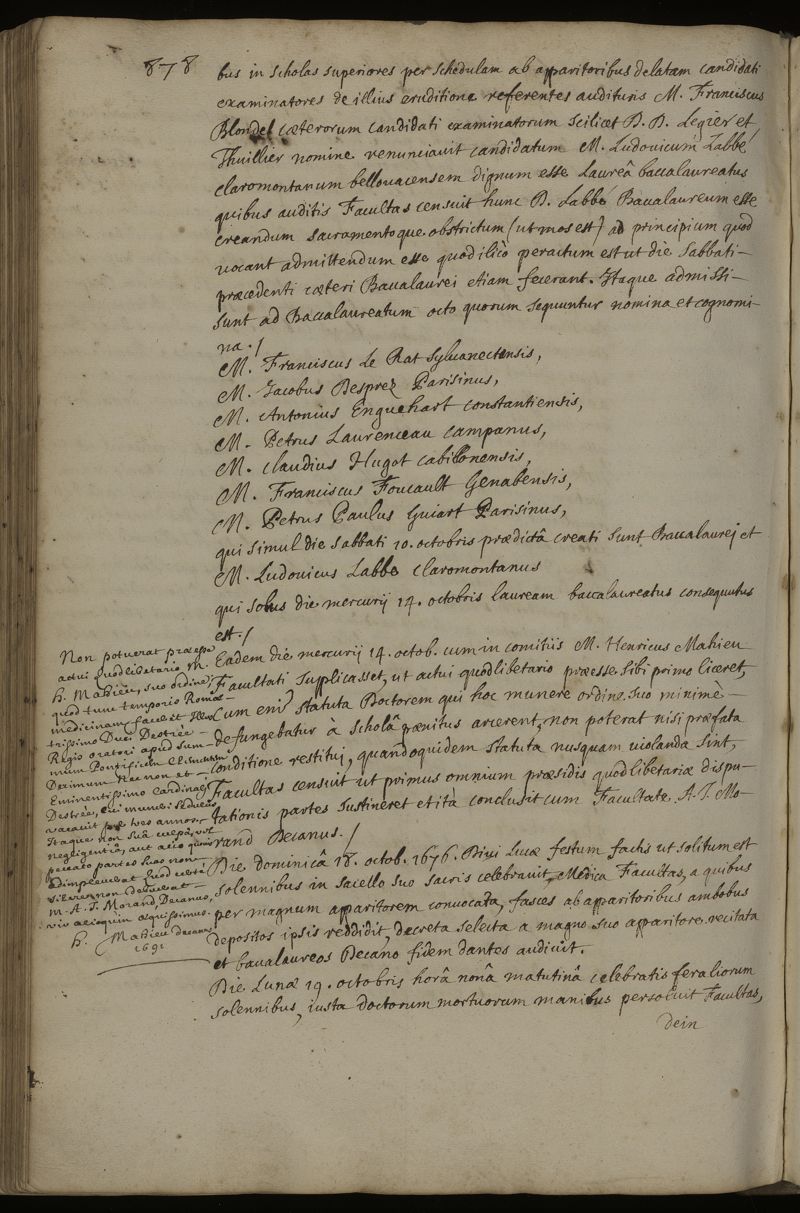 878
bus in scholas superiores per schedulam ab apparitoribus delatam candidati
examinatores de illius eruditione referentes audituris M. Franciscus
Blondel cæterorum candidati examinatorum scilicet D. D. Legier et
Thuillier nomine renunciavit candidatum M. Ludovicum Labbé
claromontanum bellovacensem dignum esse Laureâ baccalaureatus
quibus auditis Facultas censuit hunc D. Labbé Baccalaureum esse
creandum sacramentoque obstrictum (ut mos est) ad principium quod
vocant admittendum esse quod ilico peractum est ut die sabbati-
præcedenti cæteri Baccalaurei etiam fecerant. Itaque admissi-
sunt ad Baccalaureatum octo quorum sequuntur nomina et cognomi-
na./
M. Franciscus Le Rat sylvanectensis,
M. Jacobus Desprez Parisinus,
M. Antonius Enguehart constantiensis,
M. Petrus Laurenceau campanus,
M. claudius Hugot cabillonensis,
M. Franciscus Foucault Genabensis,
M. Petrus Paulus Guiart Parisinus,
qui simul die sabbati 10. octobris prædictâ creati sunt Baccalaurej et
M. Ludovicus Labbe claromontanus
qui solus die mercurij 14. octobris lauream baccalaureatus consequutus
est./
Eadem die mercurij 14. octob. cum in comitiis M. Henricus Mahieu
Facultati supplicasset, ut actui quodlibetario præesse sibi primo liceret,
cum eni statuta Doctorem qui hoc munere ordine suo minimè-
defungebatur à scholâ pænitus arcerent, non poterat nisi præfata
conditione restitui, quandoquidem statuta nusquam violanda sint,
Facultas censuit ut primus omnium præsidis quodlibetariæ dispu-
tationis partes sustineret et ità conclusit cum Facultate A. J. Mo-
rand Decanus./
Die dominicâ 18. octob. 1676. Divi Lucæ festum factis ut solitum est
solennibus in sacello suo sacris celebravit Medica Facultas, a quibus
per magnum apparitorem convocata, fasces ab apparitoribus ambobus
depositos ipsis reddidit, decreta selecta a magno suo apparitore recitata
et baccalaureos Decano fidem dantes audivit.
Die Lunæ 19. octobris horâ nonâ matutinâ celebratis feraliorum
solennibus, iusta doctorum mortuorum manibus persoluit Facultas,
dein
Non potuerat præesse
actui quodlibetario M.
h. Mahieu, suo ordine,
quod tunc temporis Romæ-
medicinam faceret Illus-
trissimo Duci Destrée-
Regio oratori apud sum-
mum Pontificem Clementem
Decimum nec non et-
Eminentissimo Cardinali
Destrée, cui muneri sedulus
vacavit per tres annos.
Itaque non suâ culpâ, vel
negligentiâ, aut alio quovis
peccato partes suas non-
adimpleverat quod certè
silere non debuerat-
M. A. J. Morand, Decanus,
vir alioquin æquissimus.
h. Mahieu Decanus
1691